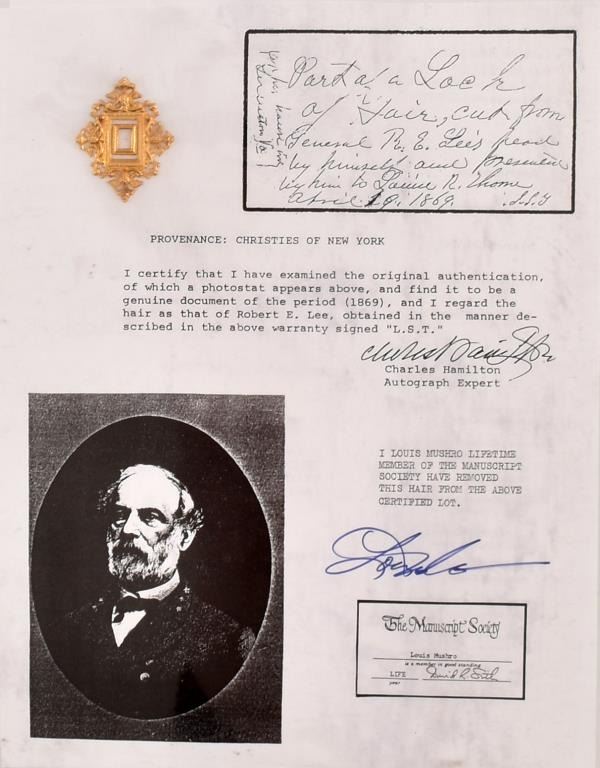 Part of a Lock
of Hair, cut from
General R. E. Lee's head
by himself and presented
by him to
April 1869.
PROVENANCE: CHRISTIES OF NEW YORK
I certify that I have examined the original authentication,
of which a photostat appears above, and find it to be a
genuine document of the period (1869), and I regard the
hair as that of Robert E. Lee, obtained in the manner de-
scribed in the above warranty signed "L.S.T."
Charles Hamilton
Autograph Expert
I LOUIS MUSHRO LIFETIME
MEMBER OF THE MANUSCRIPT
SOCIETY HAVE REMOVED
THIS HAIR FROM THE ABOVE
CERTIFIED LOT.
The Manuscript Society
Louis Mushro
is a member in good standing
LIFE
year